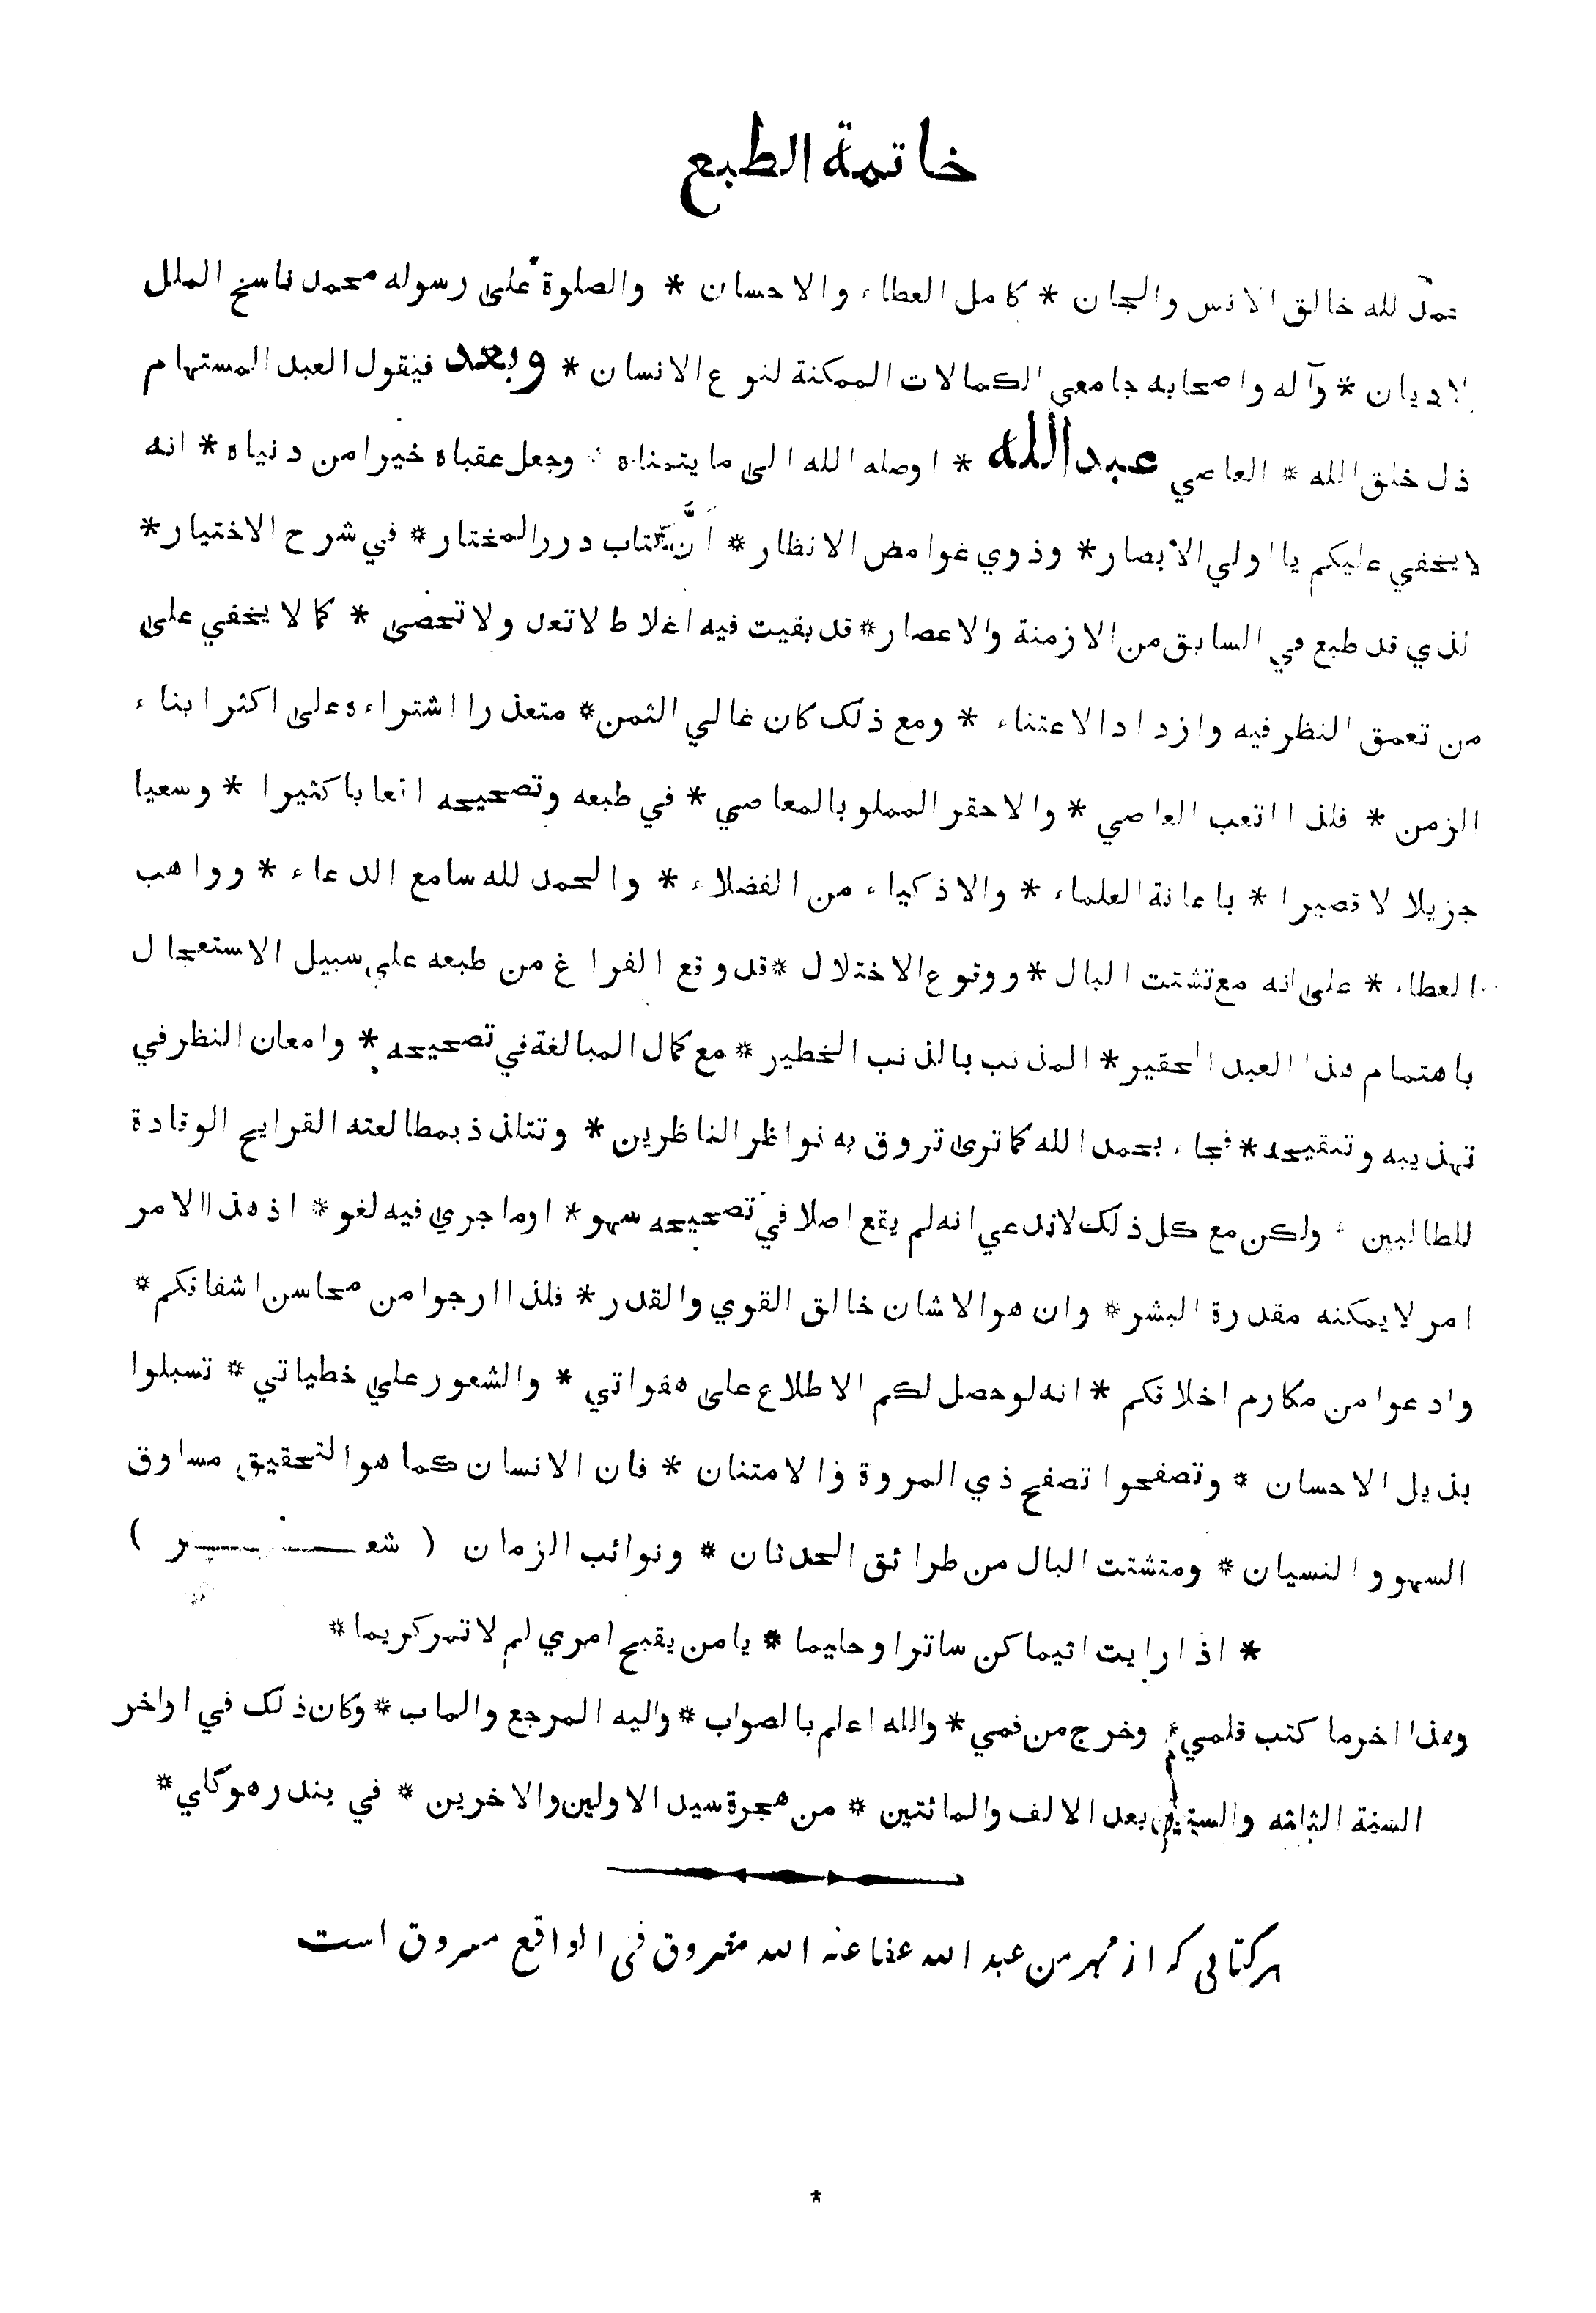 خاتمة الطبع
حمدا لله خالق الانس والجان * كامل العطاء والاحسان * والصلوة على رسوله محمد ناسخ الملل
الاديان * وآله واصحابه جامعي الكمالات الممكنة لنوع الانسان * وبعد فيقول العبد المستهام
ذل خلق الله * العاصي عبدالله * اوصله الله الى ما يتمناه * وجعل عقباه خيرا من دنياه * انه
لا يخفي عليكم يا اولي الابصار * وذوي غوامض الانظار * انّ كتاب درر المختار * في شرح الاختيار *
لذي قد طبع في السابق من الازمنة والاعصار * قد بقيت فيه اغلاط لاتعد ولا تحصى * كما لا يخفي على
من تعمق النظر فيه وازداد الاعتناء * ومع ذلك كان غالي الثمن * متعذرا اشتراءه على اكثر ابناء
الزمن * فلذا اتعب العاصي * والاحقر المملو بالمعاصي * في طبعه وتصحيحه اتعابا كثيرا * وسعيا
جزيلا لا قصيرا * باعانة العلماء * والاذكياء من الفضلاء * والحمد لله سامع الدعاء * وواهب
العطاء * على انه مع تشتت البال * ووقوع الاختلال * قد وقع الفراغ من طبعه علي سبيل الاستعجال
باهتمام هذا العبد الحقير * المذنب بالذنب الخطير * مع كمال المبالغة في تصحيحه * وامعان النظر في
تهذيبه وتنقيحه * فجاء بحمد الله كما ترى تروق به نواظر الناظرين * وتتلذذ بمطالعته القرايح الوقادة
للطالبين * ولكن مع كل ذلك لاندعي انه لم يقع اصلا في تصحيحه سهو * اوما جري فيه لغو * اذ هذا الامر
امر لا يمكنه مقدرة البشر * وان هوالاشان خالق القوي والقدر * فلذا ارجوا من محاسن اشفاقكم *
وادعوا من مكارم اخلاقكم * انه لو حصل لكم الاطلاع على هفواتي * والشعور علي خطياتي * تسبلوا
بذيل الاحسان * وتصفحوا تصفح ذي المروة ذالامتنان * فان الانسان كما هو التحقيق مساوق
السهو والنسيان * ومتشتت البال من طرائق الحدثان * ونوائب الزمان ( شعـــر )
* اذا رايت اثيما كن ساترا وحليما * يا من يقبح امري لم لا تمر كريما *
وهذا اخر ما كتب قلمي * وخرج من فمي * والله اعلم بالصواب * واليه المرجع والماب * وكان ذلك في اواخر
السنة الثالثه والستين بعد الالف والمائتين * من هجرة سيد الاولين والاخرين * في بندر هوكلي *
هر كتابي كه از مهر من عبد الله عفا عنه الله مفروق في الواقع مسروق است